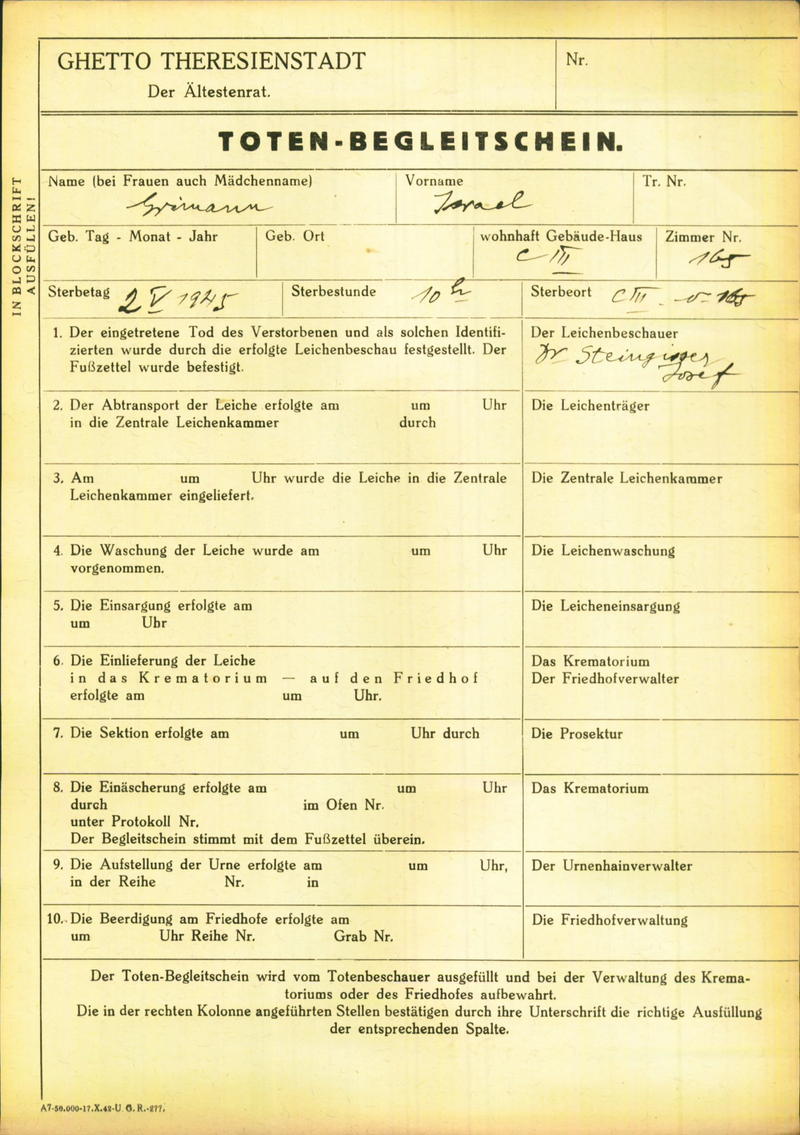 GHETTO THERESIENSTADT
Der Ältestenrat.
Nr.
TOTEN-BEGLEITSCHEIN.
IN BLOCKSCHRIFT
AUSFÜLLEN!
Name (bei Frauen auch Mädchenname)
Vorname
Tr. Nr.
Grimann
Israel
Geb. Tag - Monat - Jahr
Geb. Ort
wohnhaft Gebäude-Haus
Zimmer Nr.
C III
165
Sterbetag 2 V 1945
Sterbestunde 10 h
Sterbeort C III
1. Der eingetretene Tod des Verstorbenen und als solchen Identifi-
zierten wurde durch die erfolgte Leichenbeschau festgestellt. Der
Fußzettel wurde befestigt.
Der Leichenbeschauer
Dr Steiningger
Josef
2. Der Abtransport der Leiche erfolgte am um Uhr
in die Zentrale Leichenkammer durch
Die Leichenträger
3. Am um Uhr wurde die Leiche in die Zentrale
Leichenkammer eingeliefert.
Die Zentrale Leichenkammer
4. Die Waschung der Leiche wurde am um Uhr
vorgenommen.
Die Leichenwaschung
5. Die Einsargung erfolgte am
um Uhr
Die Leicheneinsargung
6. Die Einlieferung der Leiche
in das Krematorium — auf den Friedhof
erfolgte am um Uhr.
Das Krematorium
Der Friedhofverwalter
7. Die Sektion erfolgte am um Uhr durch
Die Prosektur
8. Die Einäscherung erfolgte am um Uhr
durch im Ofen Nr.
unter Protokoll Nr.
Der Begleitschein stimmt mit dem Fußzettel überein.
Das Krematorium
9. Die Aufstellung der Urne erfolgte am um Uhr,
in der Reihe Nr. in
Der Urnenhainverwalter
10. Die Beerdigung am Friedhofe erfolgte am
um Uhr Reihe Nr. Grab Nr.
Die Friedhofverwaltung
Der Toten-Begleitschein wird vom Totenbeschauer ausgefüllt und bei der Verwaltung des Krema-
toriums oder des Friedhofes aufbewahrt.
Die in der rechten Kolonne angeführten Stellen bestätigen durch ihre Unterschrift die richtige Ausfüllung
der entsprechenden Spalte.
A7-50.000-17.X.42-U. G. R.-277.